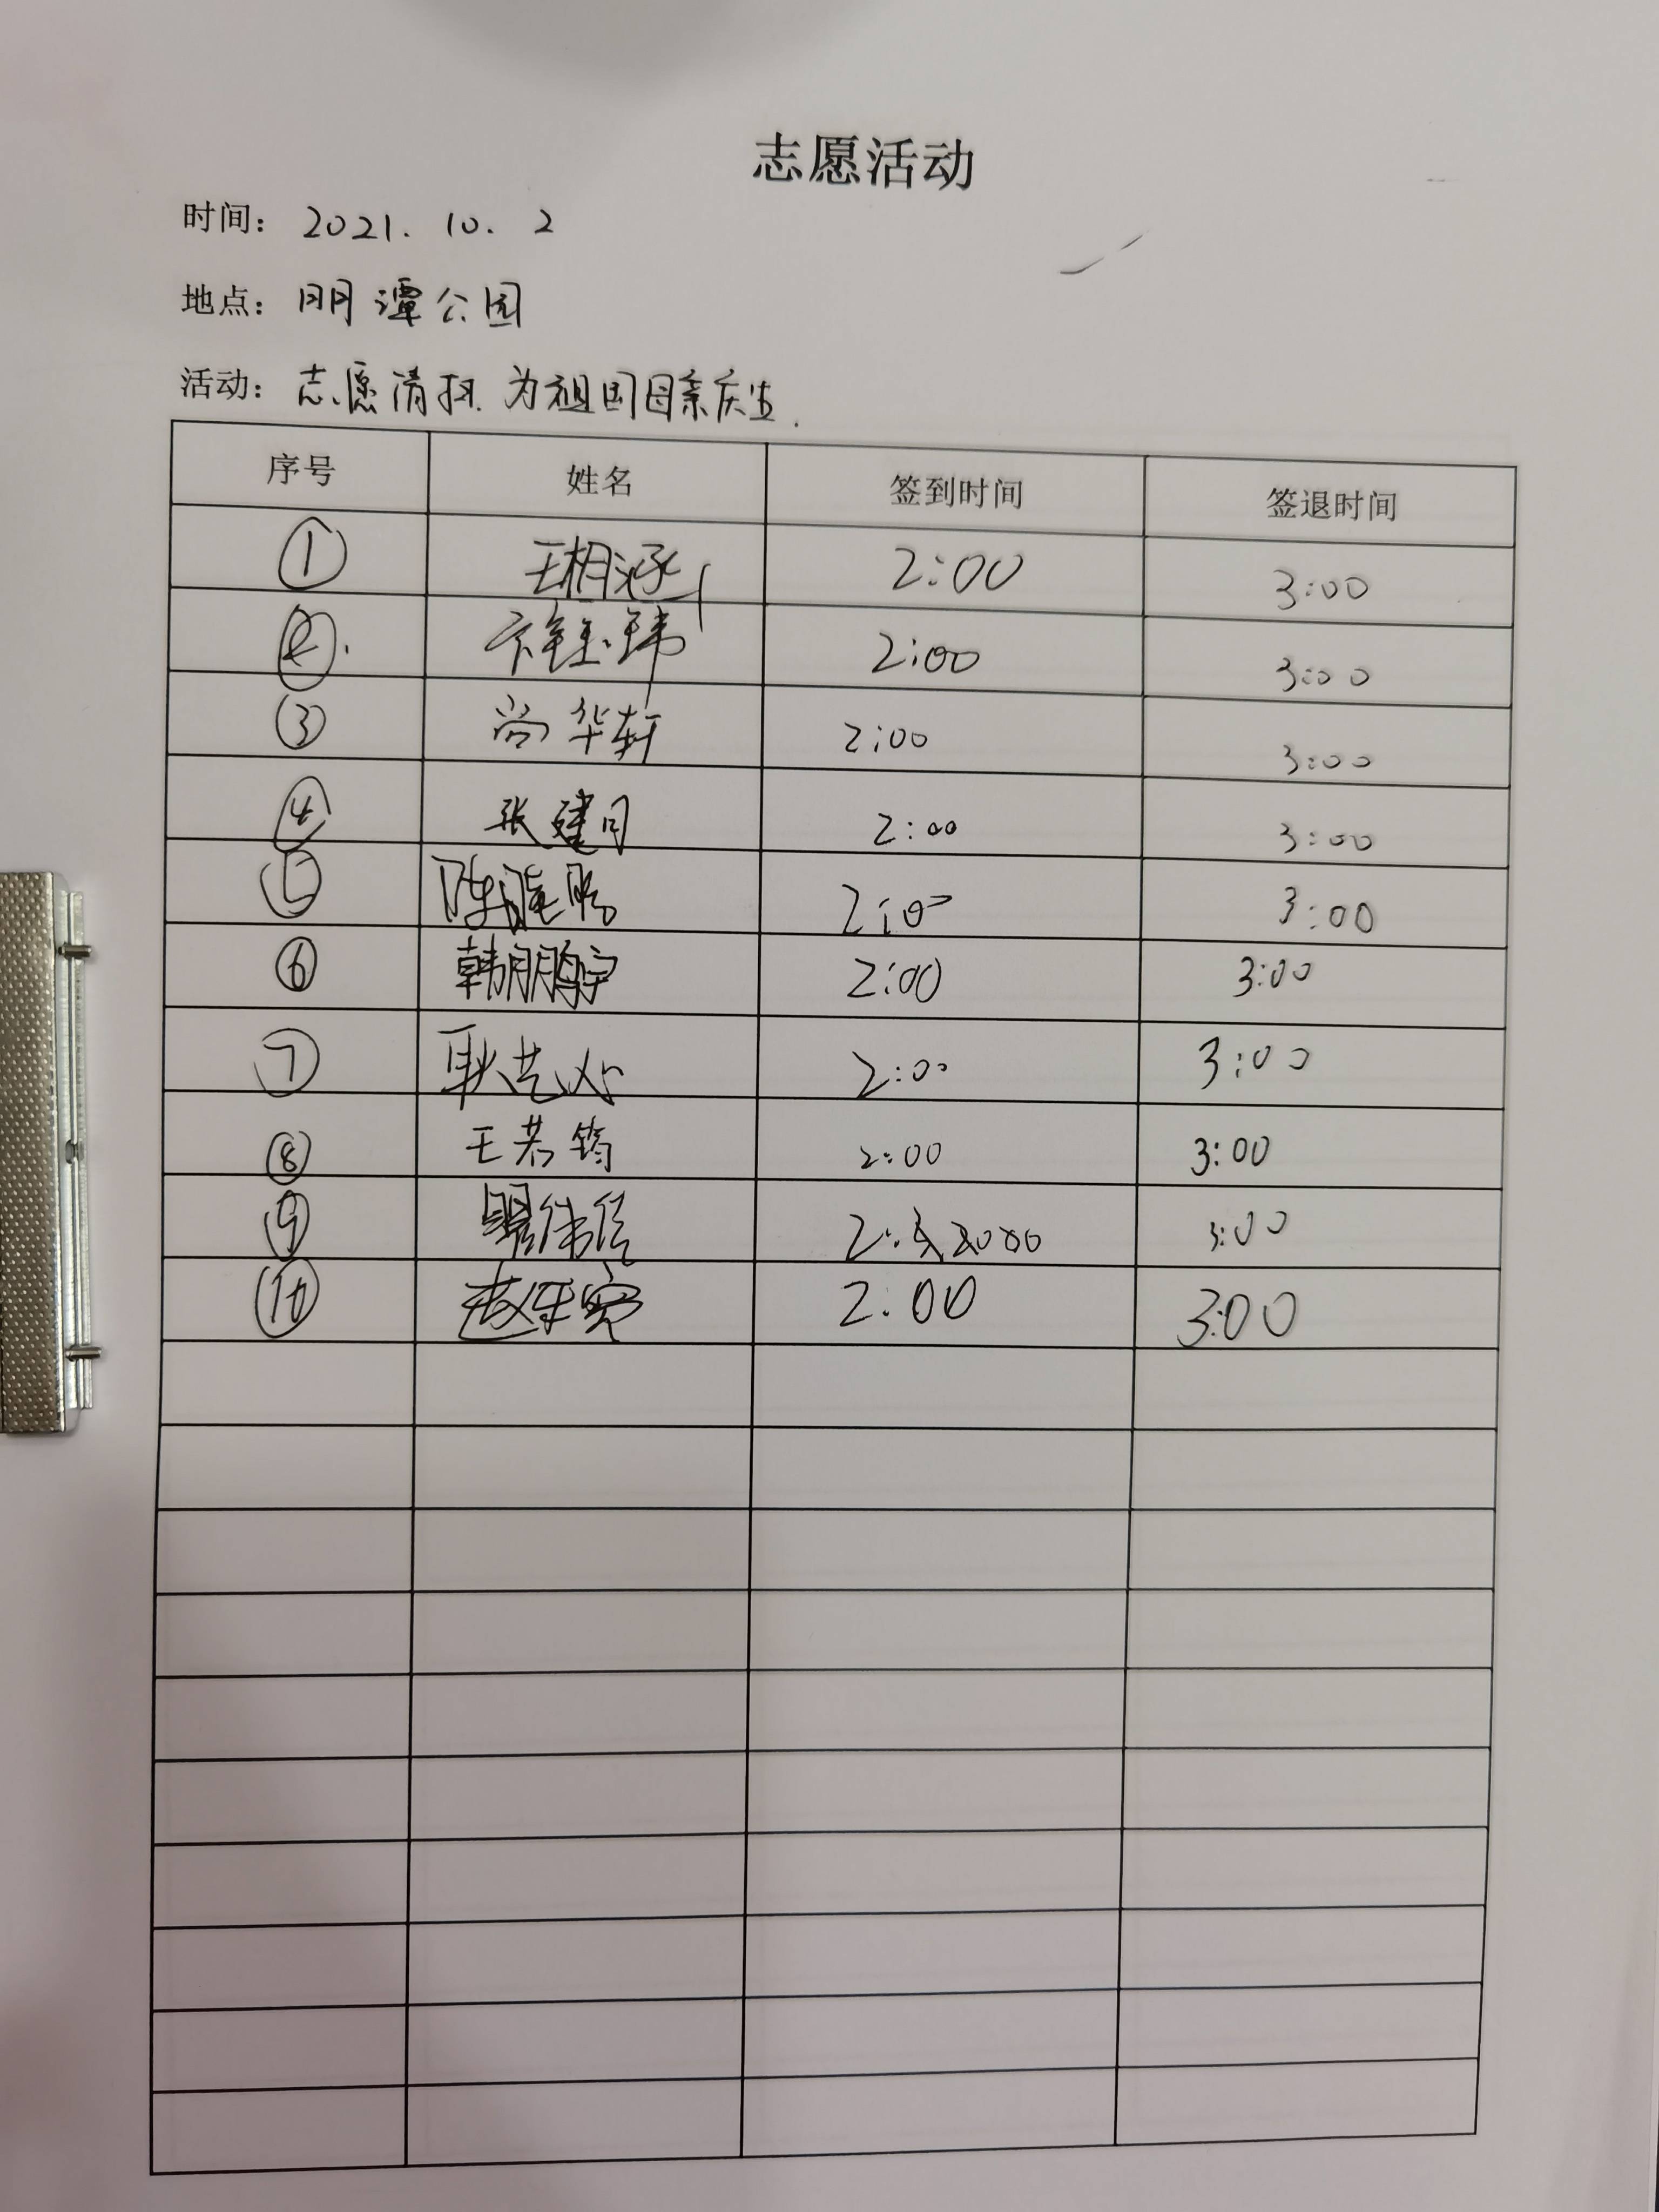 志愿活动
时间: 2021. 10. 2
地点: 明潭公园
活动: 志愿清扫. 为祖国母亲庆生.
序号 姓名 签到时间 签退时间
① 王相涵 2:00 3:00
②. 2:00 3:00
③ 尚华轩 2:00 3:00
④ 张建月 2:00 3:00
⑤ 陈 2:00 3:00
⑥ 韩鹏宇 2:00 3:00
⑦ 耿艺 2:00 3:00
⑧ 王若筠 2:00 3:00
⑨ 2: 00 3:00
⑩ 赵 2:00 3:00